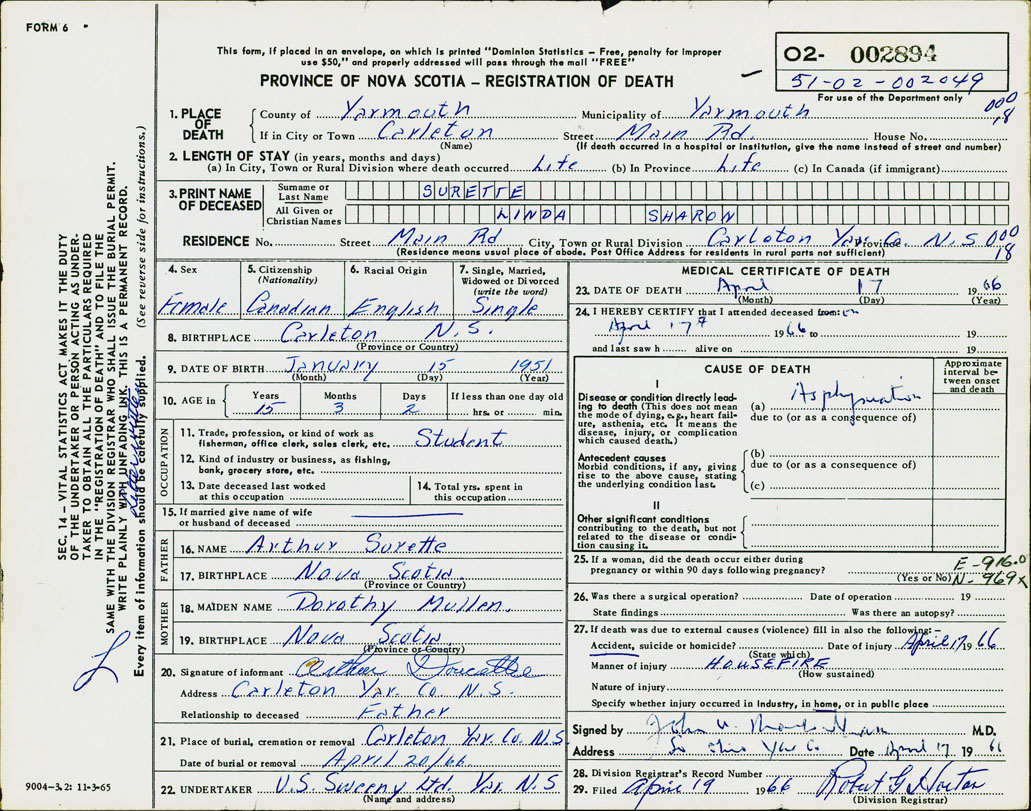 FORM 6
This form, if placed in an envelope, on which is printed "Dominion Statistics – Free, penalty for improper
use $50," and properly addressed will pass through the mail "FREE"
PROVINCE OF NOVA SCOTIA – REGISTRATION OF DEATH
02- 002894
51-02-002049
For use of the Department only
000
18
1. PLACE OF DEATH
County of Yarmouth Municipality of Yarmouth
If in City or Town Carleton Street Main Rd. House No.
(Name) (If death occurred in a hospital or institution, give the name instead of street and number)
2. LENGTH OF STAY (in years, months and days)
(a) In City, Town or Rural Division where death occurred Life (b) In Province Life (c) In Canada (if immigrant)
3. PRINT NAME OF DECEASED
Surname or Last Name SURETTE
All Given or Christian Names LINDA SHARON
RESIDENCE No. Street Main Rd City, Town or Rural Division Carleton Yar. Co. Province N.S 000
(Residence means usual place of abode. Post Office Address for residents in rural parts not sufficient) 18
4. Sex Female
5. Citizenship (Nationality) Canadian
6. Racial Origin English
7. Single, Married, Widowed or Divorced (write the word) Single
8. BIRTHPLACE Carleton N.S.
(Province or Country)
9. DATE OF BIRTH January 15 1951
(Month) (Day) (Year)
10. AGE in Years 15 Months 3 Days 2 If less than one day old hrs. or min.
OCCUPATION
11. Trade, profession, or kind of work as fisherman, office clerk, sales clerk, etc. Student
12. Kind of industry or business, as fishing, bank, grocery store, etc.
13. Date deceased last worked at this occupation
14. Total yrs. spent in this occupation
15. If married give name of wife or husband of deceased
FATHER
16. NAME Arthur Surette
17. BIRTHPLACE Nova Scotia
(Province or Country)
MOTHER
18. MAIDEN NAME Dorothy Mullen.
19. BIRTHPLACE Nova Scotia.
(Province or Country)
20. Signature of informant Arthur Doucette
Address Carleton Yar. Co N.S.
Relationship to deceased Father
21. Place of burial, cremation or removal Carleton Yar. Co. N.S
Date of burial or removal April 20/66
22. UNDERTAKER U.S. Sweeny Ltd. Yar. N.S
(Name and address)
MEDICAL CERTIFICATE OF DEATH
23. DATE OF DEATH April 17 1966
(Month) (Day) (Year)
24. I HEREBY CERTIFY that I attended deceased from: on
April 17 1966 to 19
and last saw h alive on 19
CAUSE OF DEATH
Approximate interval between onset and death
I
Disease or condition directly leading to death (This does not mean the mode of dying, e.g., heart failure, asthenia, etc. It means the disease, injury, or complication which caused death.)
(a) Asphyxiation
due to (or as a consequence of)
Antecedent causes
Morbid conditions, if any, giving rise to the above cause, stating the underlying condition last.
(b)
due to (or as a consequence of)
(c)
II
Other significant conditions
contributing to the death, but not related to the disease or condition causing it.
25. If a woman, did the death occur either during pregnancy or within 90 days following pregnancy?
(Yes or No)
E-916.0
N-969x
26. Was there a surgical operation? Date of operation 19
State findings Was there an autopsy?
27. If death was due to external causes (violence) fill in also the following:–
Accident, suicide or homicide? Date of injury April 17 1966
(State which)
Manner of injury HOUSEFIRE
(How sustained)
Nature of injury
Specify whether injury occurred in Industry, in home, or in public place
Signed by John M.D.
Address Yar Co Date April 17 1966
28. Division Registrar's Record Number
29. Filed April 19 1966 Robert G
(Division Registrar)
SEC. 14 – VITAL STATISTICS ACT MAKES IT THE DUTY
OF THE UNDERTAKER OR PERSON ACTING AS UNDERTAKER
TO OBTAIN ALL THE PARTICULARS REQUIRED
IN THE "REGISTRATION OF DEATH" AND TO FILE THE
SAME WITH THE DIVISION REGISTRAR WHO SHALL ISSUE THE BURIAL PERMIT.
WRITE PLAINLY WITH UNFADING INK. THIS IS A PERMANENT RECORD.
Every item of information should be carefully supplied. (See reverse side for instructions.)
9004-3.2: 11-3-65